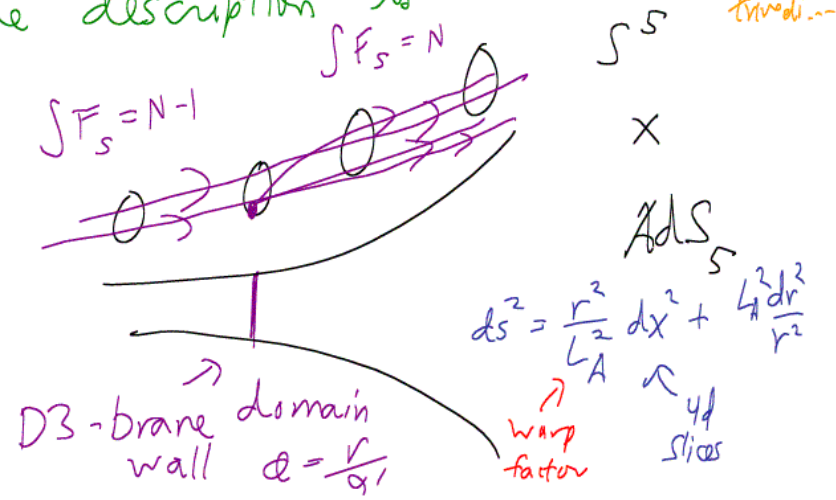 description
∫F_5 = N
S^5
∫F_5 = N-1
×
AdS_5
ds^2 = r^2/L_A^2 dx^2 + L_A^2 dr^2/r^2
D3-brane domain
wall φ = r/α'
warp
factor
4d
slices